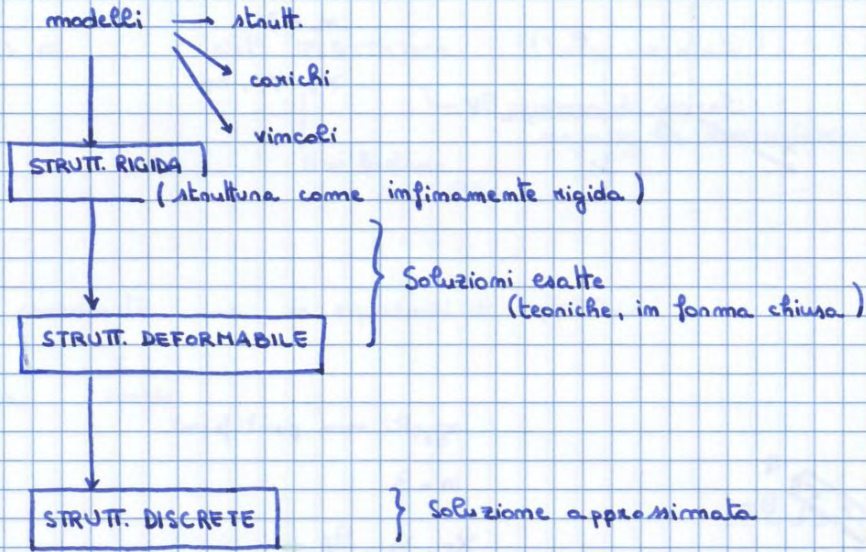 modelli → strutt.
carichi
vincoli
STRUTT. RIGIDA
(struttura come infinamente rigida)
Soluzioni esatte
(teoriche, in forma chiusa)
STRUTT. DEFORMABILE
STRUTT. DISCRETE
Soluzione approssimata